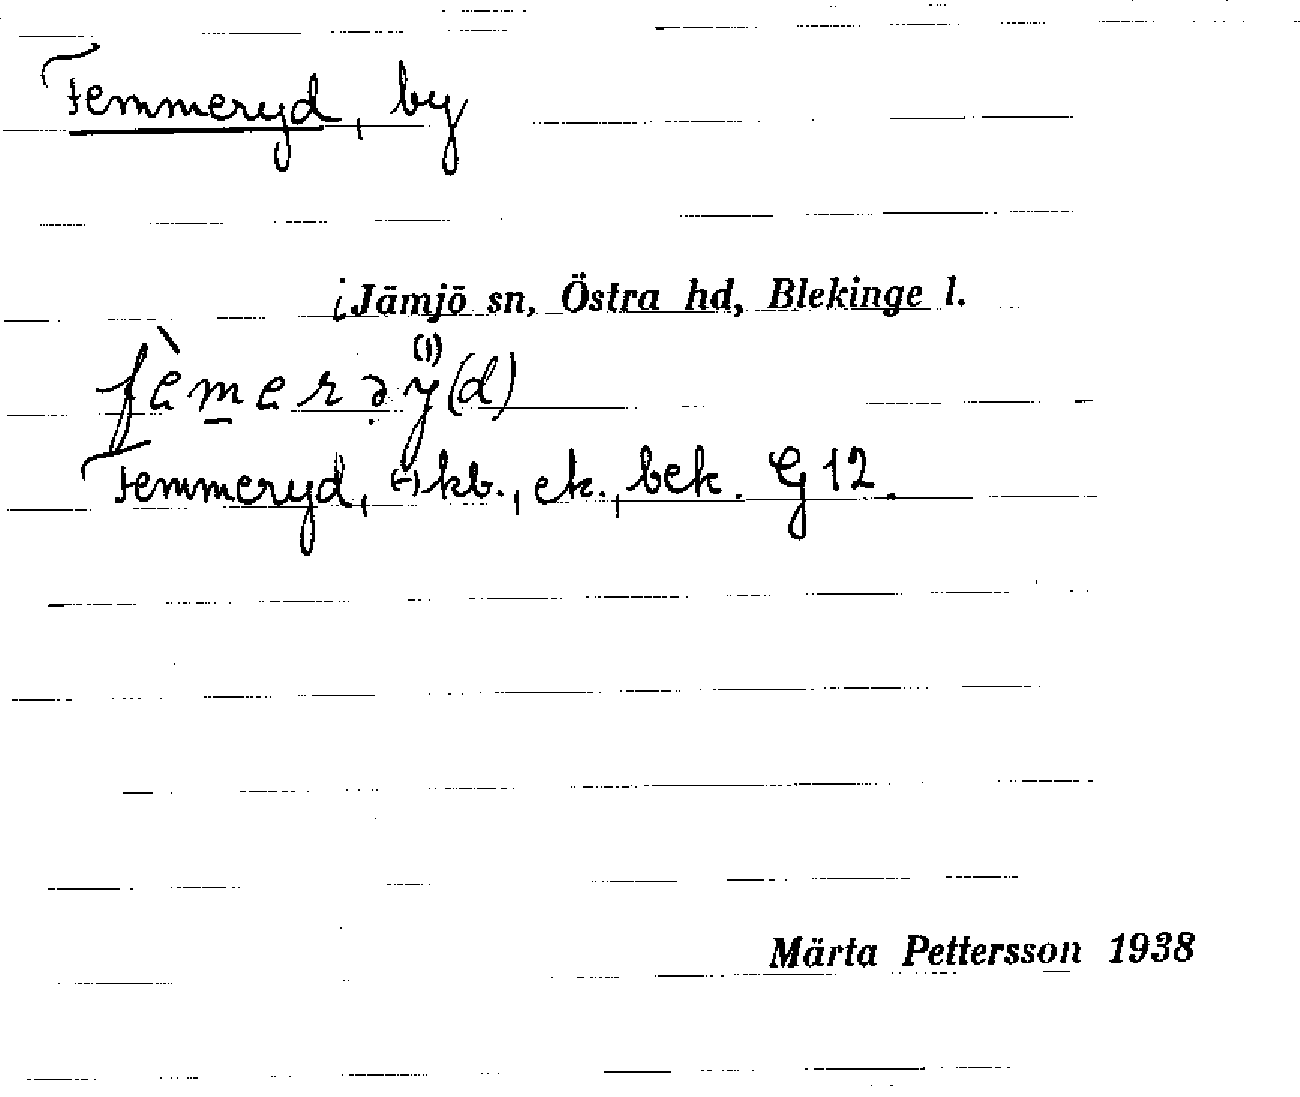 Femmeryd, by
i Jämjö sn, Östra hd, Blekinge l.
fèmerəy(d)
Femmeryd, (-) kb., ek., bek. G 12.
Märta Pettersson 1938